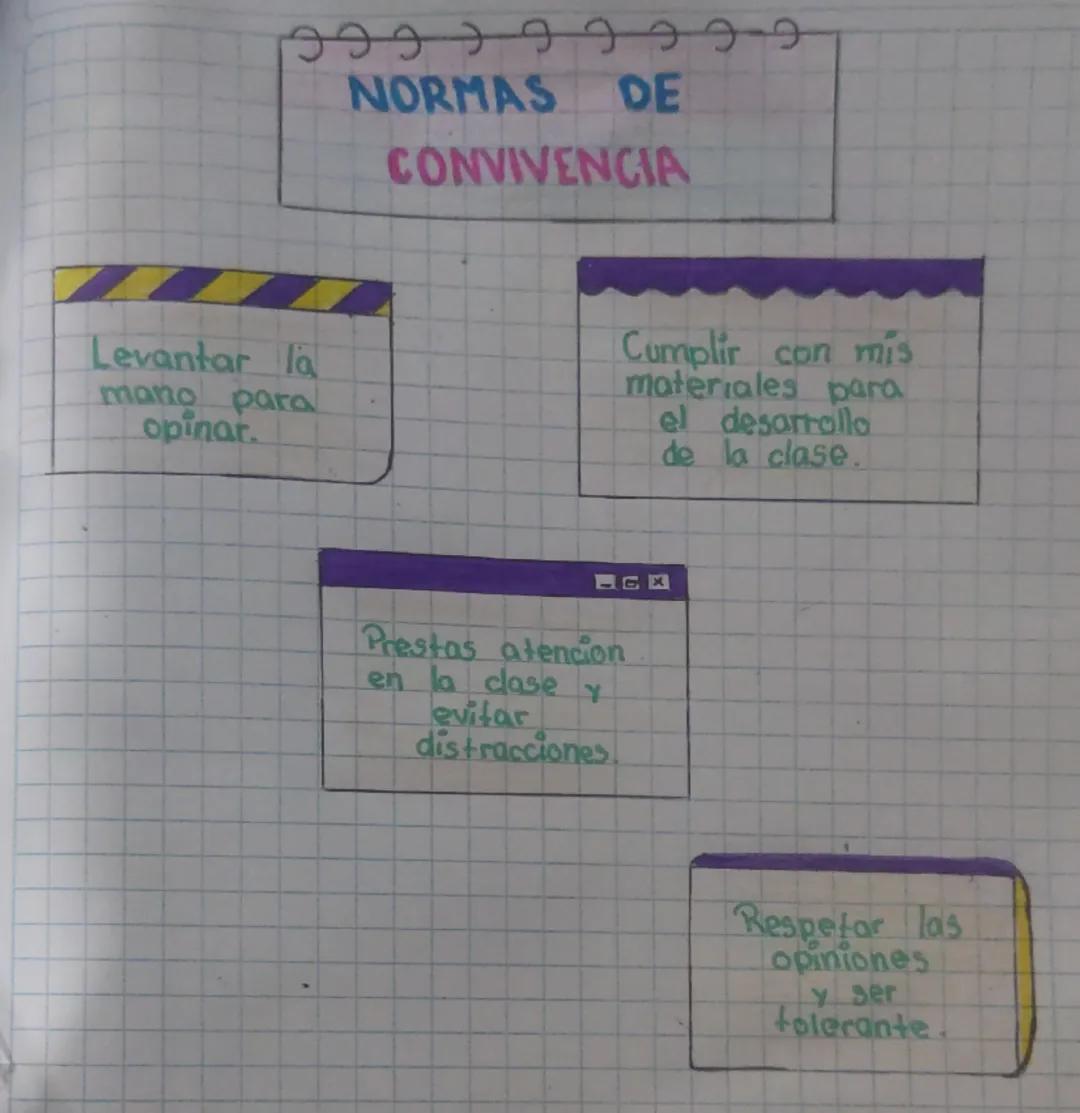 NORMAS DE
CONVIVENCIA
Levantar la
mano para
opinar.
Cumplir con mis
materiales para
el desarrollo
de la clase.
Prestas atencion
en la clase y
evitar
distracciones.
Respetar las
opiniones
y ser
tolerante.